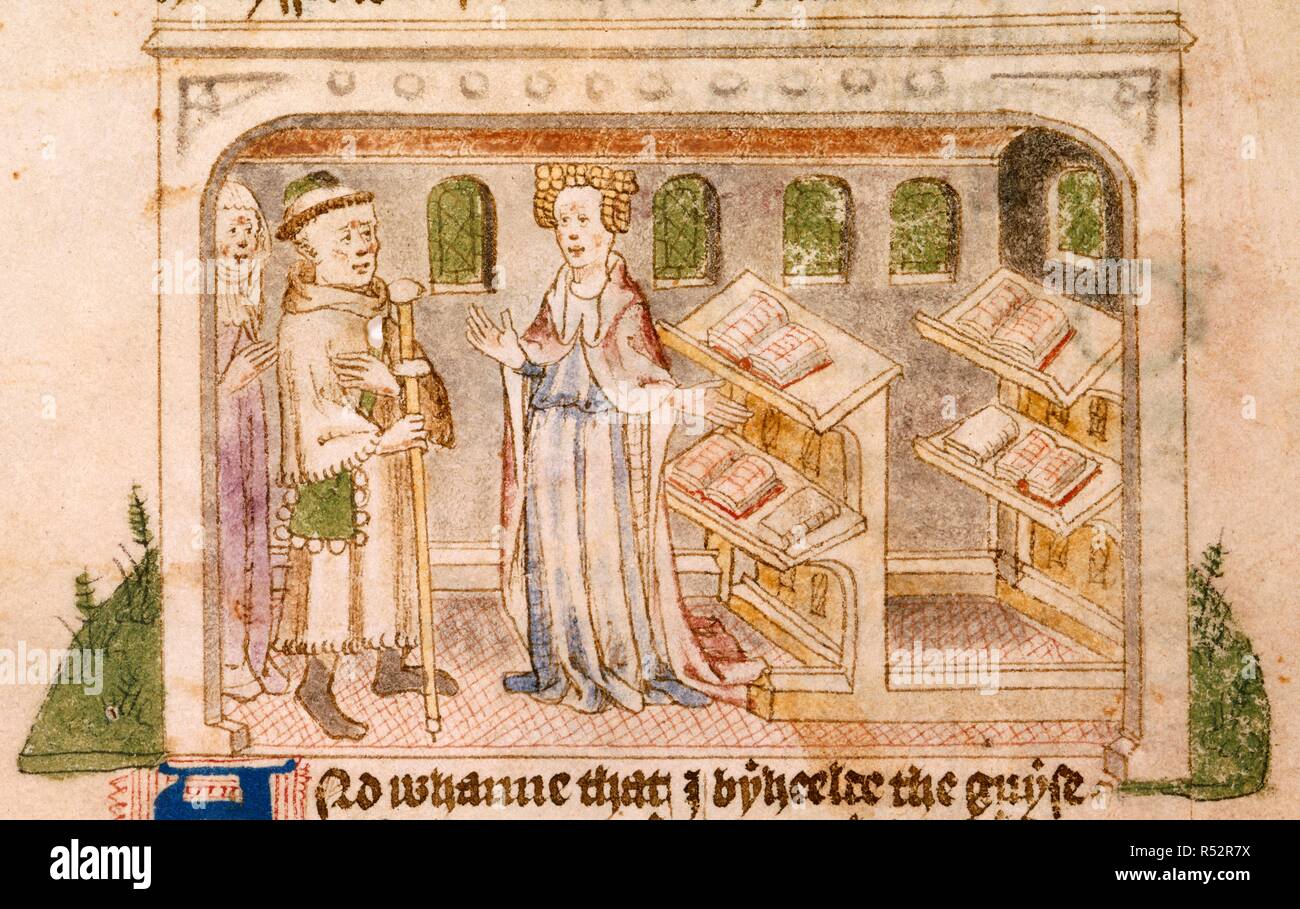 And whanne that I byheelde the guyse
alamy
a
a
alamy
Image ID: R52R7X
www.alamy.com